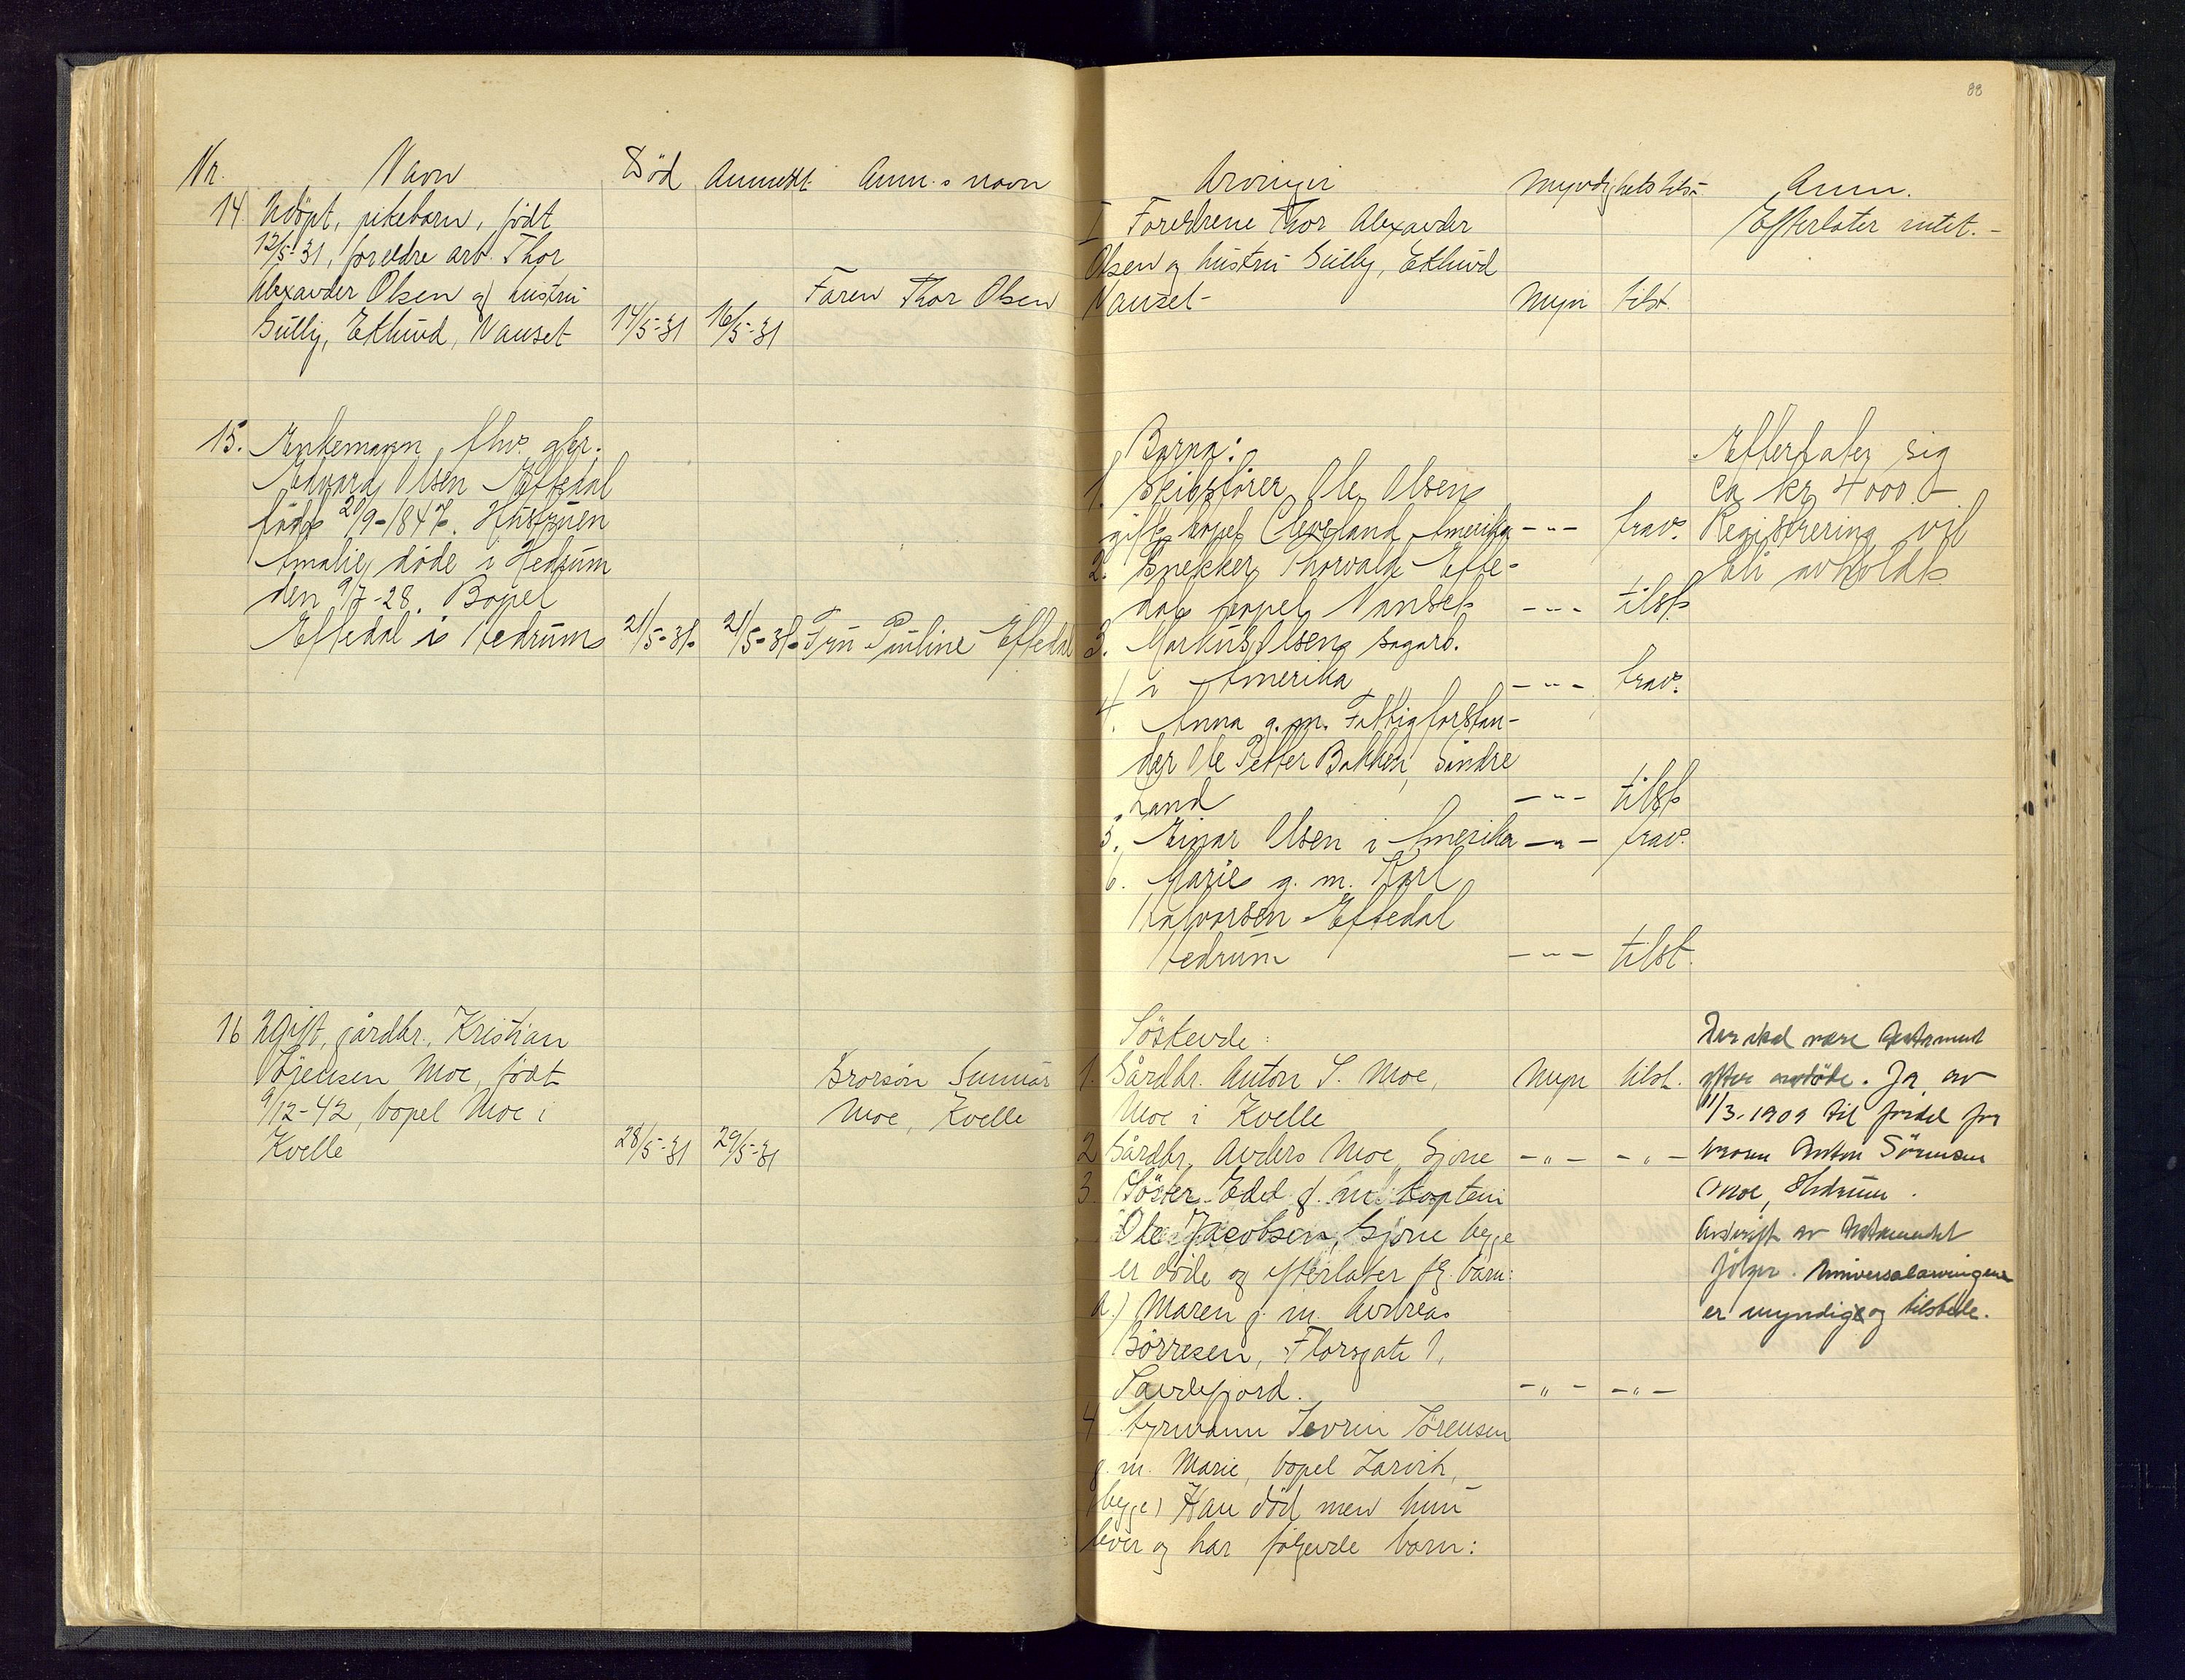 88
Nr. Navn Död Anmeldt Anm.s navn
14 Udöpt, pikebarn, födt
12/5-31, foreldre arb. Thor
Alexander Olsen og hustru
Gully, Eklund, Nanset 14/5-31 16/5-31
Faren Thor Olsen
15. Enkemann, fhv. gbr.
Edvard Olsen Eftedal
född 20/9-1847. Hustruen
Amalie döde i Hedrum
den 9/7-28. Bopel
Eftedal i Hedrum 21/5-31. 21/5-31. Fru Pauline Eftedal
16 Ugift, gårdbr. Kristian
Sörensen Moe, födt
9/12-42, bopel Moe i
Kvelle 28/5-31 29/5-31
Brorsön Gunnar
Moe, Kvelle
Arvinger Myndighetstilst. Anm.
I Foreldrene Thor Alexander
Olsen og hustru Gully, Eklund
Nanset- Myn tilst.
Efterlater intet.-
Barna:
1. Skibsförer Ole Olsen
gift bopel Cleveland Amerika -"- frav.
2. Snekker Thorvald Efte-
dal bopel Nanset -"- tilst.
3. Markus Olsen sagarb.
i Amerika -"- frav.
4. Anna g.m. Fattigforstan-
der Ole Petter Bakken, Söndre
Land -"- tilst
5. Einar Olsen i Amerika -"- frav.
6. Marie g. m. Karl
Halvorsen Eftedal
Hedrum -"- tilst.
Efterlater sig
ca kr 4000.-
Registrering vil
bli avholdt
Söskende:
1. Gårdbr. Anton S. Moe, Myn tilst.
Moe i Kvelle
2 Gårdbr. Anders Moe, Gjone -"- -"-
3 Söster Edel g. m. kaptein
Ole Jacobsen, Gjone begge
er döde og efterlater fg. barn:
a.) Maren g. m. Andreas
Börresen, Florsgate 1,
Sandefjord. -"- -"-
4 Styrmann Severin Sörensen
g. m. Marie, bopel Larvik,
(begge) Han död men hun
lever og har fölgende barn:
Der skal være testament
efter avdöde. Ja av
11/3-1909 til fordel for
broren Anton Sörensen
Moe, Hedrum.
Avskrift av testamentet
fölger. Universalarvingene
er myndige og tilstede.